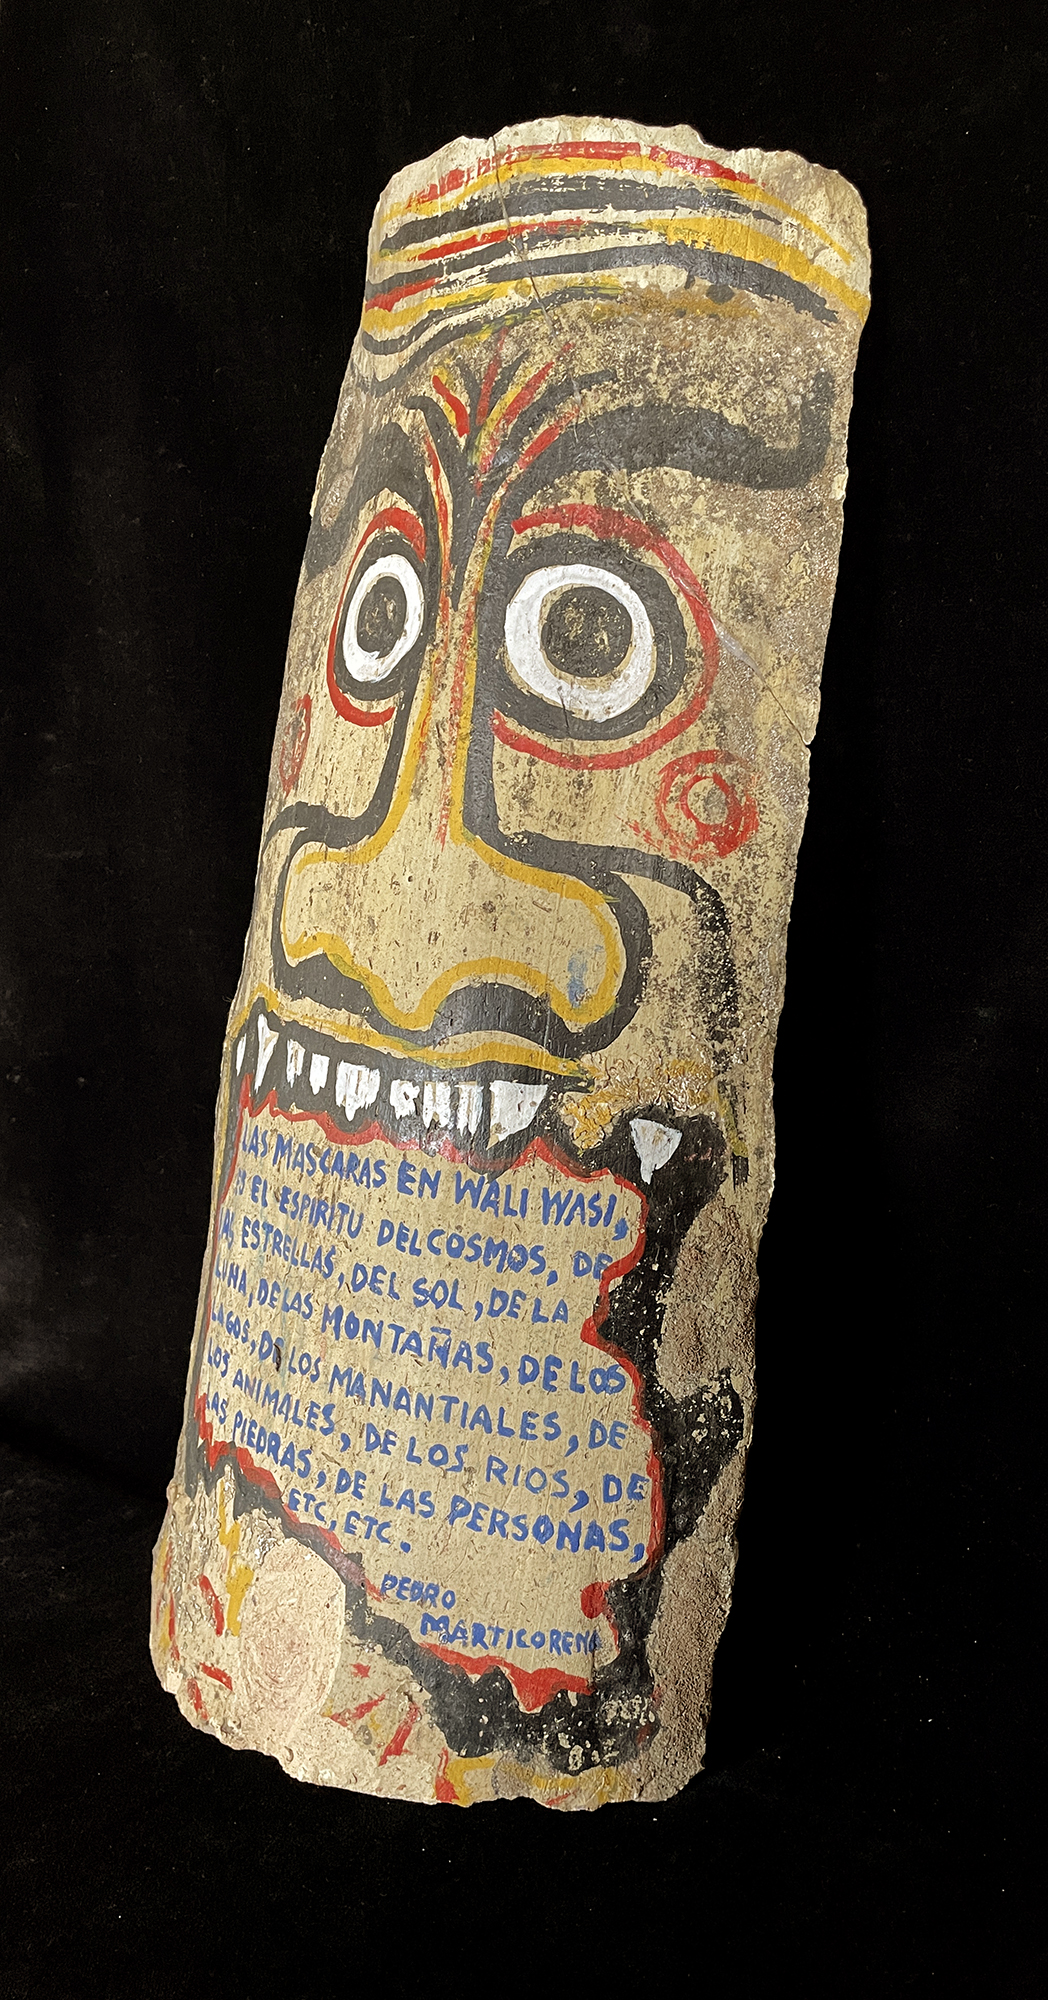 LAS MASCARAS EN WALI WASI,
ES EL ESPIRITU DEL COSMOS, DE
LAS ESTRELLAS, DEL SOL, DE LA
LUNA, DE LAS MONTAÑAS, DE LOS
LAGOS, DE LOS MANANTIALES, DE
LOS ANIMALES, DE LOS RIOS, DE
LAS PIEDRAS, DE LAS PERSONAS,
ETC, ETC.
PEDRO
MARTICORENA